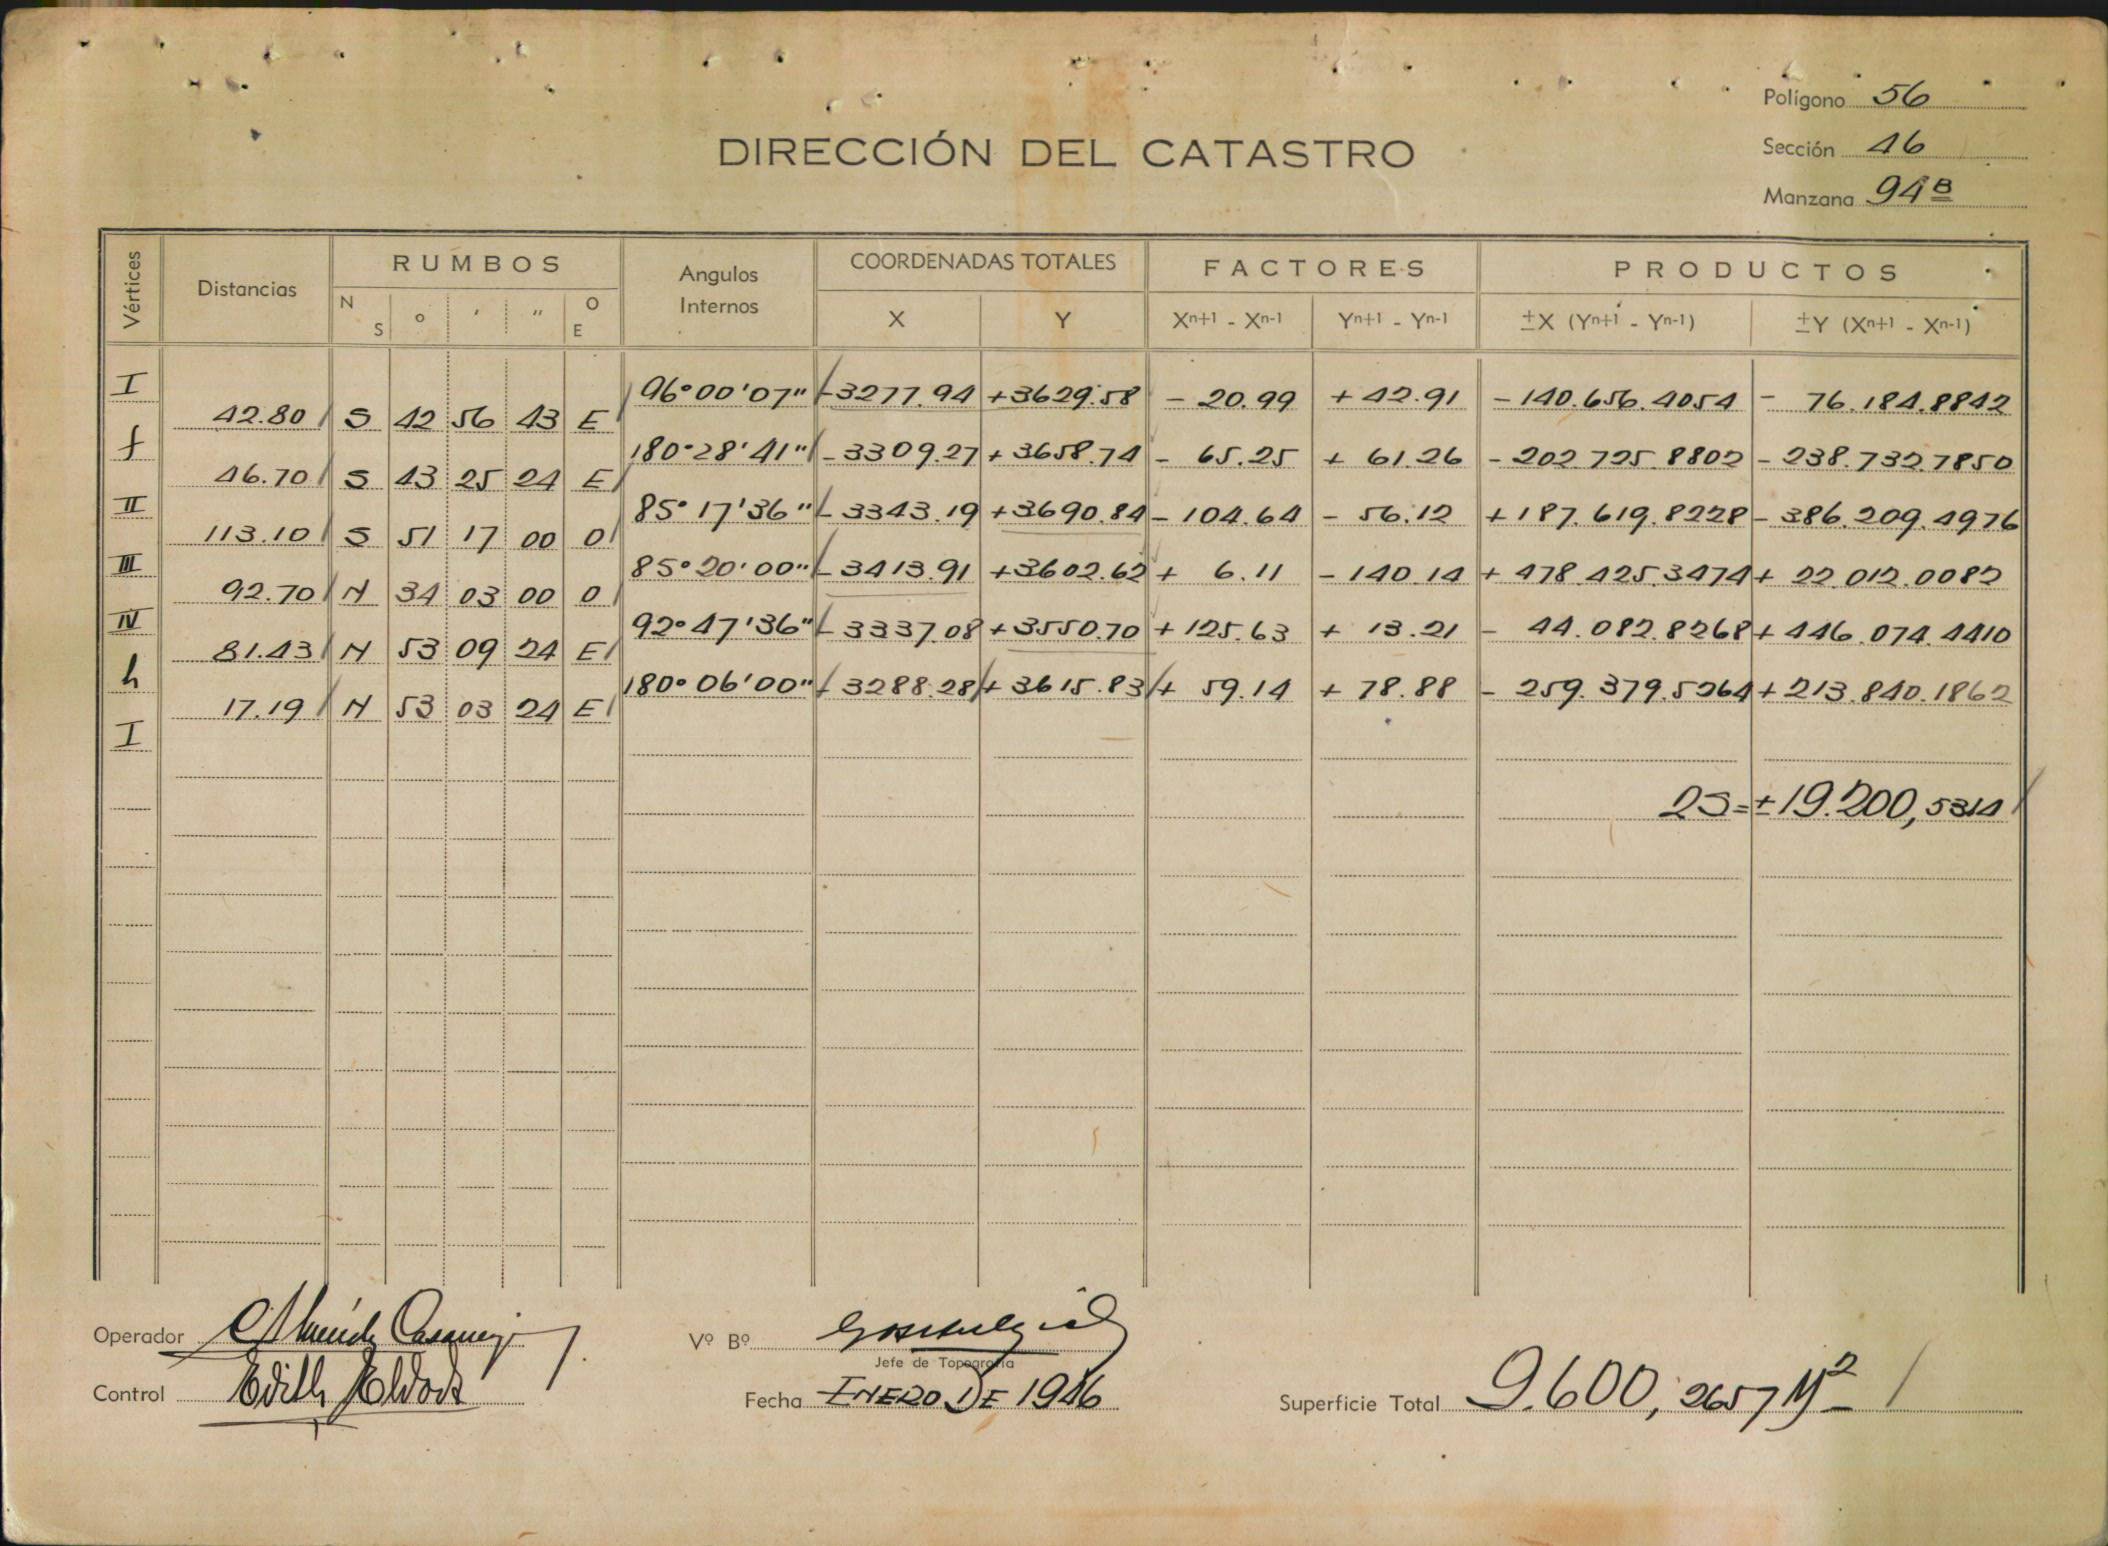 Polígono 56
Sección 46
Manzana 94 B
DIRECCIÓN DEL CATASTRO
Vértices Distancias RUMBOS N S ° ' " O E Angulos Internos COORDENADAS TOTALES X Y FACTORES Xn+1 - Xn-1 Yn+1 - Yn-1 PRODUCTOS ±X (Yn+1 - Yn-1) ±Y (Xn+1 - Xn-1)
I 96°00'07" -3277.94 +3629.58 - 20.99 + 42.91 -140.656.4054 - 76.184.8842
42.80 S 42 56 43 E
f 180°28'41" -3309.27 +3658.74 - 65.25 + 61.26 -202.725.8802 -238.732.7850
46.70 S 43 25 24 E
II 85°17'36" -3343.19 +3690.84 -104.64 - 56.12 +187.619.8228 -386.209.4976
113.10 S 51 17 00 O
III 85°20'00" -3413.91 +3602.62 + 6.11 -140.14 +478.425.3474 + 22.012.0082
92.70 N 34 03 00 O
IV 92°47'36" -3337.08 +3550.70 +125.63 + 13.21 - 44.082.8268 +446.074.4410
81.43 N 53 09 24 E
h 180°06'00" -3288.28 +3615.83 + 59.14 + 78.88 - 259.379.5264 +213.840.1862
17.19 N 53 03 24 E
I
2S=±19.200,5314
Operador
Vº Bº
Jefe de Topografía
Control Edith
Fecha ENERO DE 1946
Superficie Total 9.600,2657 M2